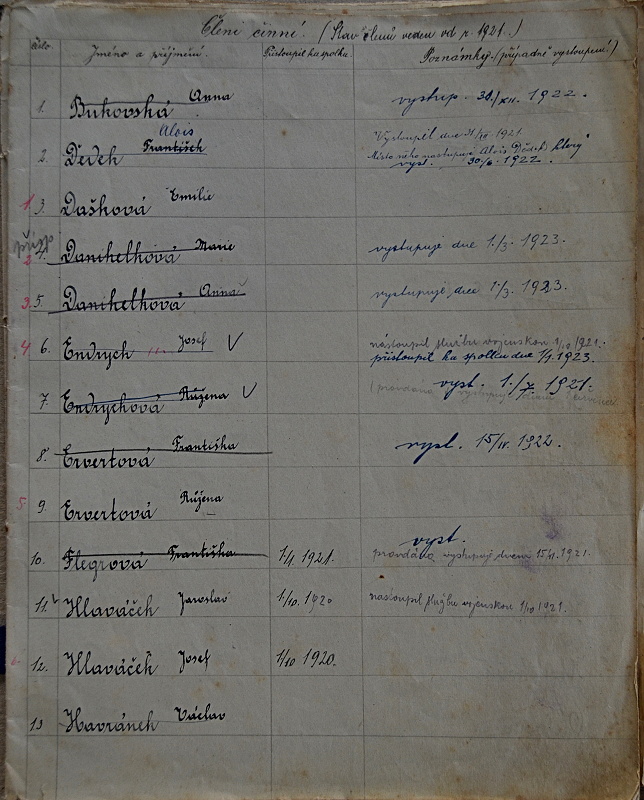 Členi činní. (Stav členů veden od r. 1921.)
číslo. Jméno a příjmení. Přistoupil ka spolku. Poznámky. (případné vystoupení!)
1. Bukovská Anna vystup. 30./XII. 1922.
Alois Vystoupil dne 31/XII 1921.
2. Dědek František Místo něho nastupuje Alois Dědek, který
vyst. 30/6. 1922.
1. 3. Dašková Emilie
přisp
2 4. Danihelková Marie vystupuje dne 1./3. 1923.
3. 5. Danihelková Anna vystupuje dne 1/3. 1923.
4 6. Endrych Josef V nastoupil službu vojenskou 1/10 1921.
přistoupil ka spolku dne 1/1. 1923.
7. Endrychová Růžena V vyst. 1./7. 1921.
(provdána vystupuje
8. Ervertová Františka vyst. 15/IV. 1922.
5. 9. Ervertová Růžena
vyst.
10. Flegrová Františka 1/1. 1921. provdána vystupuje dnem 15/4. 1921.
11. Hlaváček Jaroslav 1/10. 1920 nastoupil službu vojenskou 1/10 1921.
12. Hlaváček Josef 1/10 1920.
13 Havránek Václav